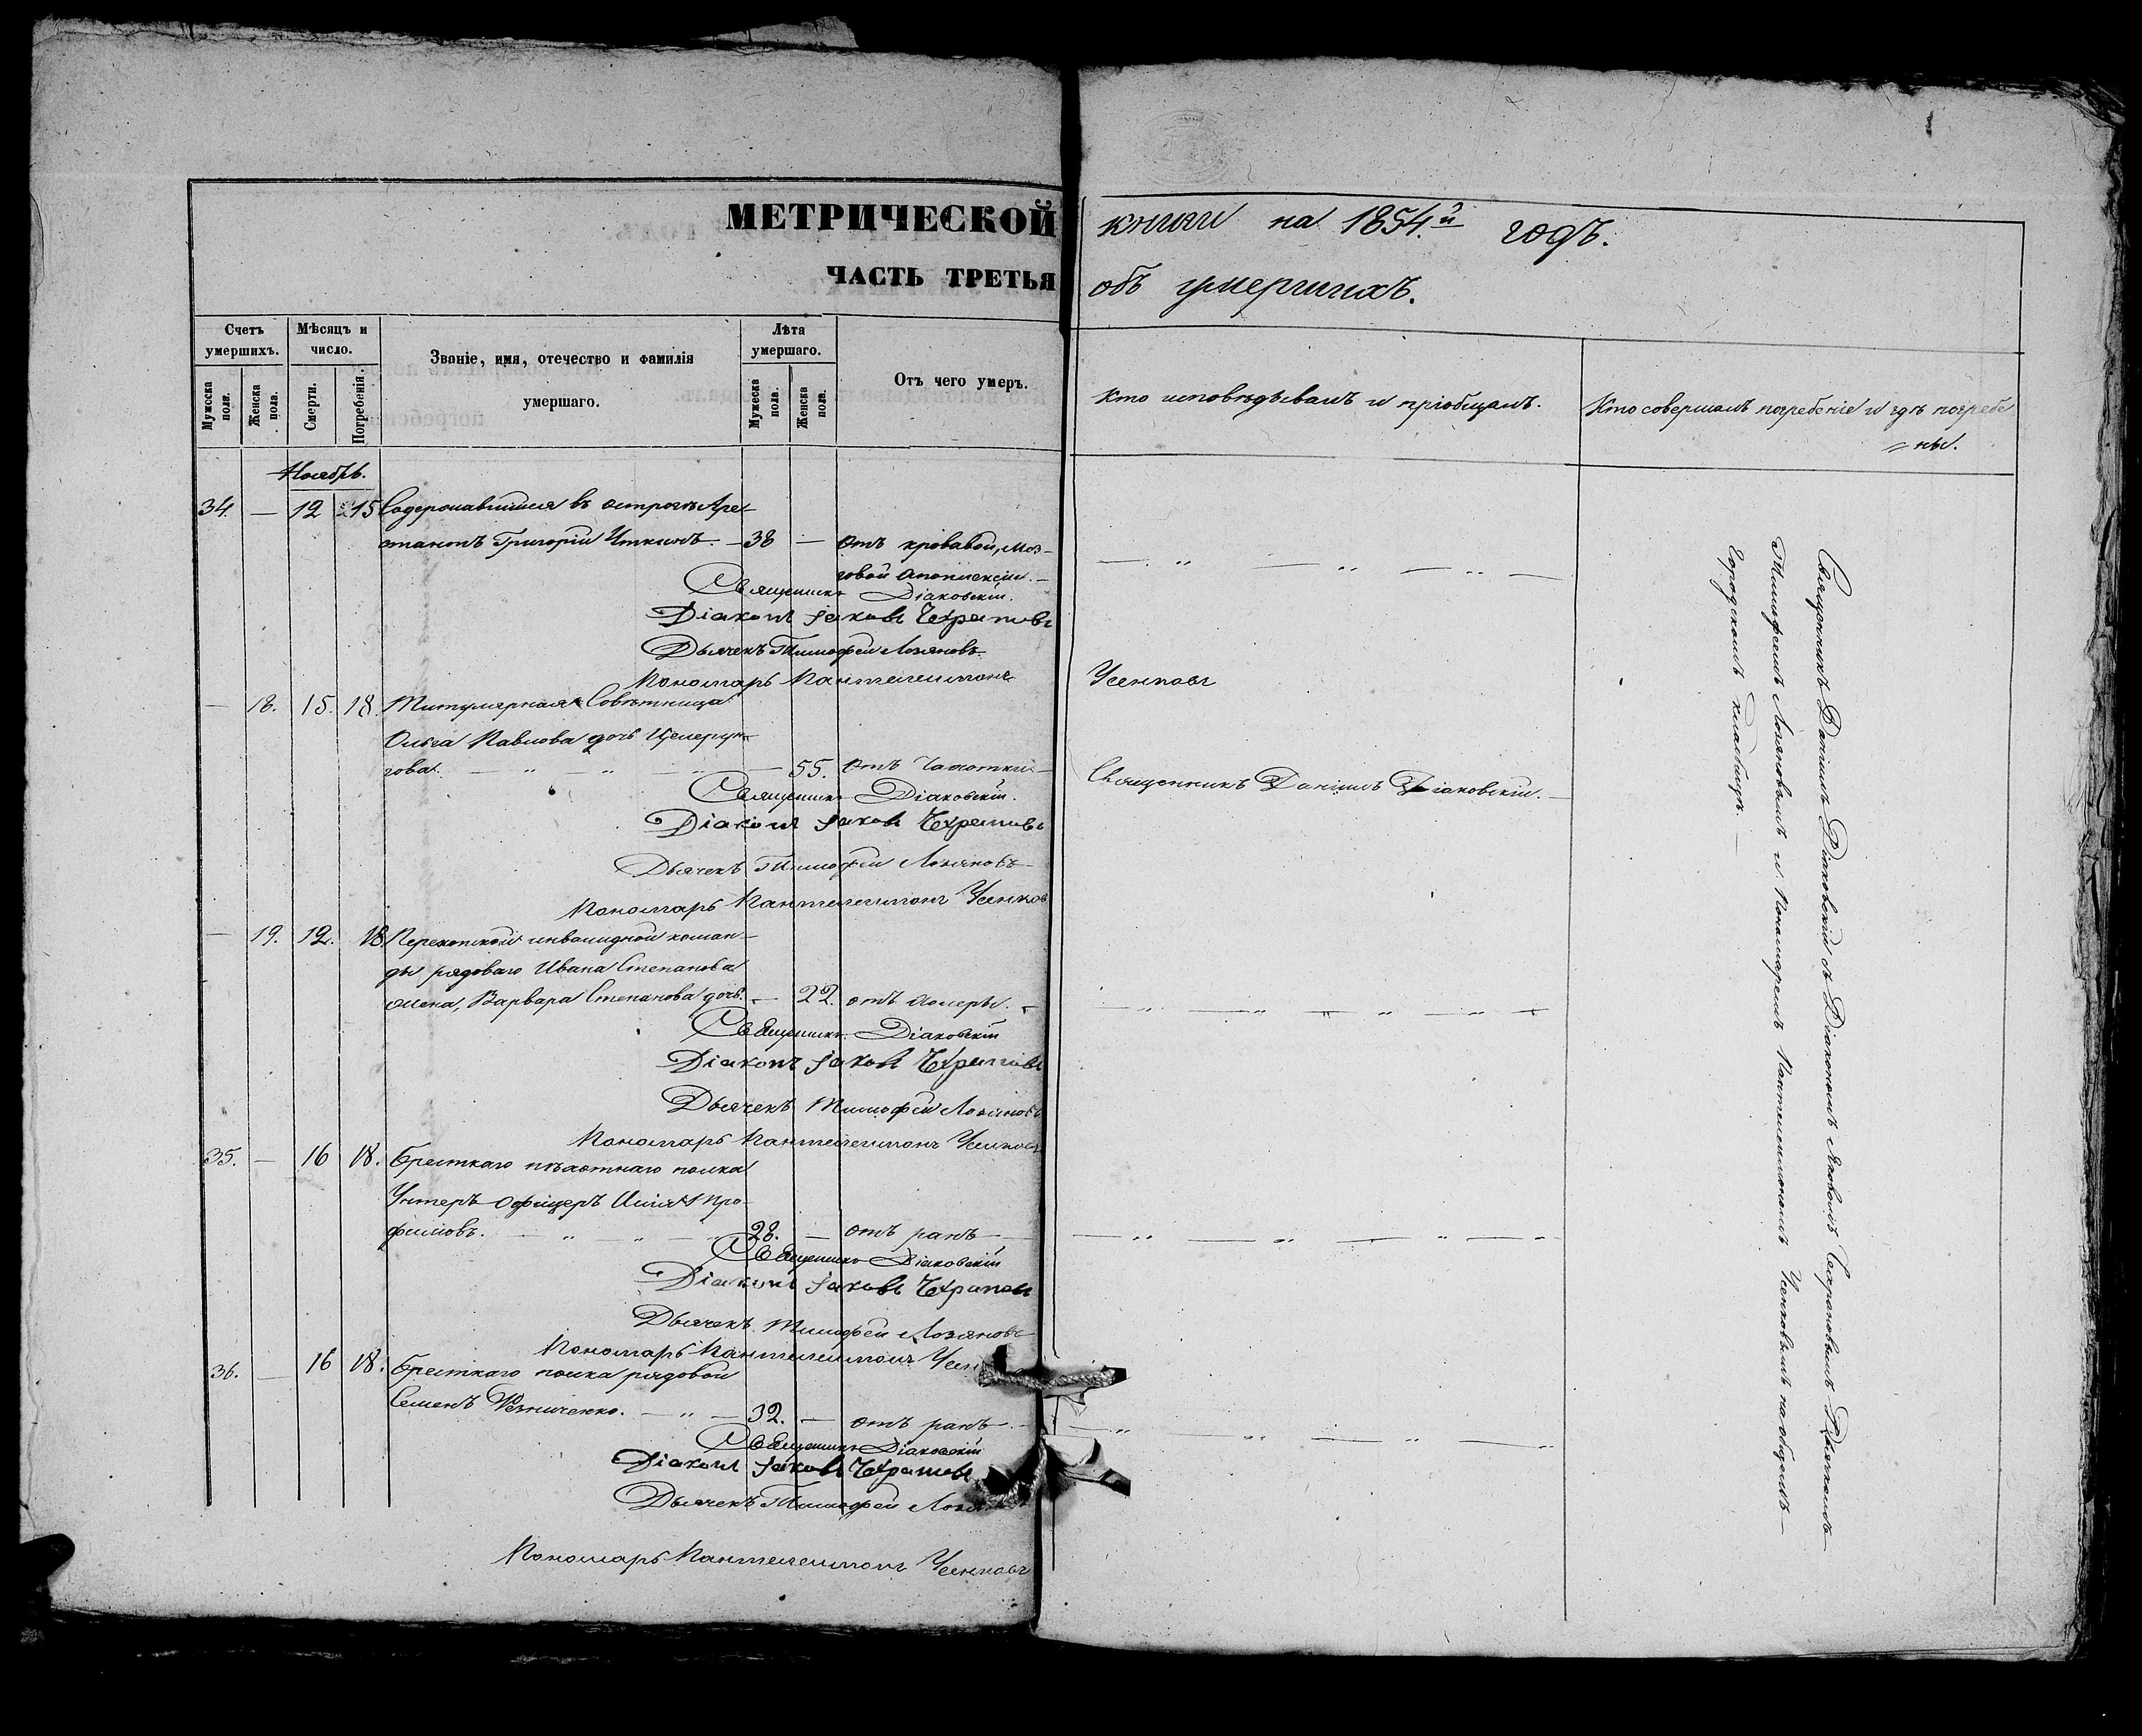 МЕТРИЧЕСКОЙ
ЧАСТЬ ТРЕТЬЯ
Счетъ умершихъ.
Мужеска пола.
Женска пола.
Мѣсяцъ и число.
Смерти.
Погребенія.
Званіе, имя, отечество и фамилія
умершаго.
Лѣта умершаго.
Мужеска пола.
Женска пола.
Отъ чего умеръ.
Ноябрь.
34. — 12 15 Содержавшійся въ острогѣ Аре-
стантъ Григорій Уткинъ. — 38 — Отъ кровавой, моз-
говой апоплексіи. —
Священникъ Діаковскій.
Діаконъ Іаковъ Чехрановъ
Дьячекъ Тимофей Лозяновъ
Пономарь Пантелеимонъ
— 18. 15. 18. Титулярная Совѣтница
Ольга Павлова дочь
гова. — „ — „ — „ — 55. Отъ Чахотки —
Священникъ Діаковскій.
Діаконъ Іаковъ Чехрановъ
Дьячекъ Тимофей Лозяновъ
Пономарь Пантелеимонъ Усенков
— 19. 12. 18. Перекопской инвалидной коман-
ды рядоваго Ивана Степанова
жена, Варвара Степанова дочь. — 22. отъ холеры. —
Священникъ Діаковскій
Діаконъ Іаковъ Чехрановъ
Дьячекъ Тимофей Лозяновъ
Пономарь Пантелеимонъ Усенковъ
35. — 16 18. Бресткаго пѣхотнаго полка
Унтеръ-Офицеръ Илія
фимовъ. — „ — „ — 28. — отъ ранъ —
Священникъ Діаковскій
Діаконъ Іаковъ Чехрановъ
Дьячекъ Тимофей Лозяновъ
Пономарь Пантелеимонъ
36. — 16 18. Бресткаго полка рядовой
Семенъ Резниченко. — „ — 32. — отъ ранъ —
Священникъ Діаковскій
Діаконъ Іаковъ Чехрановъ
Дьячекъ Тимофей
Пономарь Пантелеимонъ Усенковъ
книги на 1854.й годъ.
объ умершихъ.
Кто исповѣдывалъ и пріобщалъ.
Кто совершалъ погребеніе и гдѣ погребе
= ны.
— „ — „ — „ —
Усенковъ
Священникъ Даніилъ Діаковскій. —
— „ — „ — „ — „ —
— „ — „ — „ — „ —
— „ — „ — „ — „
Священникъ Даніилъ Діаковскій съ Діакономъ Яковомъ Чехрановымъ Дьячкомъ
Тимофеемъ Лозяновымъ и Пономаремъ Пантелеимономъ Усенковымъ на общемъ
Городскомъ кладбищѣ. —